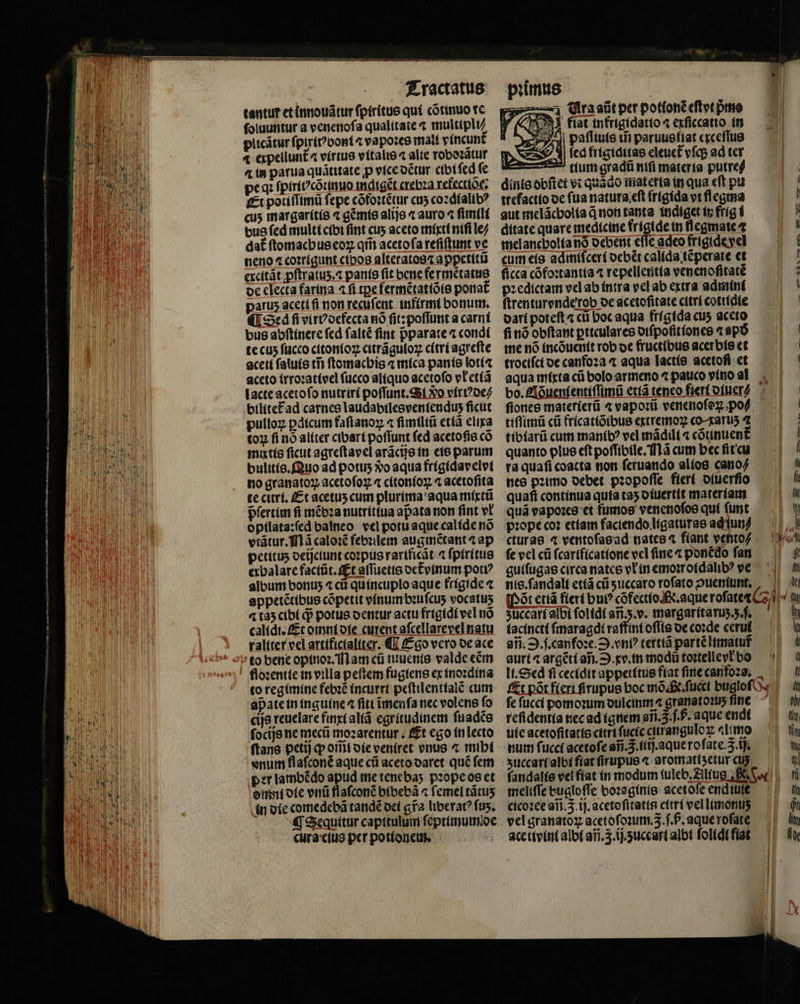 Tractatus
tantur et innouãtur ſpiritus qui cõtinuo re
ſoluuntur a venenoſa qualitate ⁊ multipli⸗
plicãtur ſpirit⁹ boni ⁊ vapores mali vincunt̃
⁊ expellunt̃ ⁊ virtus vitalis ⁊ alie roborãtur
⁊ in parua quãtitate ꝓ vice dẽtur cibi ſed ſe
pe qꝛ ſpirit⁹ cõtinuo indigẽt crebra refectiõe;
Et potiſſimũ ſepe cõfortẽtur cuꝫ cordialib⁹
cuꝫ margaritis ⁊ gẽmis alijs ⁊ auro ⁊ ſimili
bus ſed multi cibi ſint cuꝫ aceto mixti niſi le⸗
dat̃ ſtomachus eoꝝ qm̃ acetoſa reſiſtunt ve
neno ⁊ corrigunt cibos alteratos ⁊ appetitũ
excitãt ꝓſtratuꝫ. ⁊ panis ſit bene fermẽtatus
de electa farina ⁊ ſi tpe fermẽtatiõis ponat̃
paruꝫ aceti ſi non recuſent infirmi bonum.
¶ Sed ſi virt⁹ defecta nõ ſit: poſſunt a carni
bus abſtinere ſed ſaltẽ ſint p̃parate ⁊ condi
te cuꝫ ſucco citonioꝝ citrãguloꝝ citri agreſte
aceti ſaluis tñ ſtomachis ⁊ mica panis loti ⁊
aceto irrorati vel ſucco aliquo acetoſo vł etiã
lacte acetoſo nutriri poſſunt. Si ꝟo virt⁹ de⸗
bilitet̃ ad carnes laudabiles venienduꝫ ſicut
pulloꝝ ꝑdicum faſianoꝝ ⁊ ſimiliũ etiã elixa
toꝝ ſi nõ aliter cibari poſſunt ſed acetoſis cõ
mixtis ſicut agreſta vel arãcijs in eis parum
bulitis. Quo ad potuꝫ ꝟo aqua frigida vel vi
no granatoꝝ acetoſoꝝ ⁊ citonioꝝ ⁊ acetoſita
te citri. Et acetuꝫ cum plurima aqua mixtũ
p̃ſertim ſi mẽbra nutritiua ap̃ata non ſint vł
opilata: ſed balneo vel potu aque calide nõ
vtãtur. Nã calorẽ febrilem augmẽtant ⁊ ap
petitus deijciunt corpus rarificãt ⁊ ſpiritus
exhalare faciũt. Et aſſuetis det̃ vinum poti⁹
album bonuꝫ ⁊ cũ quincuplo aque frigide ⁊
appetẽtibus cõpetit vinum bruſcuꝫ vocatuꝫ
⁊ taꝫ cibi ꝙ̃ potus dentur actu frigidi vel nõ
calidi. Et omni die curent aſcellare vel natu
raliter vel artificialiter. ¶ Ego vero de ace
to bene opinor. Nam cũ iuuenis valde eẽm
florentie in villa peſtem fugiens ex inordina
to regimine febrẽ incurri peſtilentialẽ cum
ap̃ate in inguine ⁊ ſiti imẽnſa nec volens ſo
cijs reuelare finxi aliã egritudinem ſuadẽs
ſocijs ne mecũ morarentur. Et ego in lecto
ſtans petij ꝙ om̃i die veniret vnus ⁊ mihi
vnum flaſconẽ aque cũ aceto daret quẽ ſem
per lambẽdo apud me tenebaꝫ prope os et
omni die vnũ flaſconẽ bibebã ⁊ ſemel tãtuꝫ
in die comedebã tandẽ dei gr̃a liberat⁹ fuꝫ.
¶ Sequitur capitulum ſeptimum: de
cura eius per potionem.
primus
Ura aũt per potionẽ eſt vt p̃mo
fiat infrigidatio ⁊ exſiccatio in
paſſiuis tñ paruus fiat exceſſus
ſed frigiditas eleuet̃ vſqꝫ ad ter
tium gradũ niſi materia putre⸗
dinis obſtet vt quãdo materia in qua eſt pu
trefactio de ſua natura, eſt frigida vt flegma
aut melãcholia q̃ non tanta indiget in frigi
ditate quare medicine frigide in flegmate ⁊
melancholia nõ debent eſſe adeo frigide vel
cum eis admiſceri debẽt calida tẽperate et
ſicca cõfortantia ⁊ repellentia venenoſitatẽ
predictam vel ab intra vel ab extra admini
ſtrentur vnde rob de acetoſitate citri cottidie
dari poteſt ⁊ cũ hoc aqua frigida cuꝫ aceto
ſi nõ obſtant ꝑticulares diſpoſitiones ⁊ apð
me nõ incõuenit rob de fructibus acerbis et
trociſci de canfora ⁊ aqua lactis acetoſi et
aqua mixta cũ bolo armeno ⁊ pauco vino al
bo. Cõuenientiſſimũ etiã teneo fieri diuer⸗
ſiones materierũ ⁊ vaporũ venenoſoꝝ po⸗
tiſſimũ cũ fricatiõibus extremoꝝ coxaruꝫ ⁊
tibiarũ cum manib⁹ vel mãdili ⁊ cõtinuent̃
quanto plus eſt poſſibile. Nã cum hec ſit cu
ra quaſi coacta non ſeruando alios cano⸗
nes primo debet propoſſe fieri diuerſio
quaſi continua quia taꝫ diuertit materiam
quã vapores et fumos venenoſos qui ſunt
prope cor etiam faciendo ligaturas adiun⸗
cturas ⁊ ventoſas ad nates ⁊ fiant vento⸗
ſe vel cũ ſcarificatione vel ſine ⁊ ponẽdo ſan
guiſugas circa nates vł in emoroidalib⁹ ve
nis. ſandali etiã cũ zuccaro roſato ꝓueniunt.
Põt etiã fieri hui⁹ cõfectio. Rͤ. aque roſate ⁊
zuccari albi ſolidi añ. ℥. v. margaritaruꝫ. ʒ. ſ.
iacincti ſmaragdi raffini oſſis de corde cerui
añ. ℈. ſ. canfore. ℈. vni⁹ tertiã partẽ limatur̃
auri ⁊ argẽti añ. ℈. xv. in modũ tortelle vł bo
li. Sed ſi cecidit appetitus fiat ſine canfora.
Et põt fieri ſirupus hoc mõ. Rͤ. ſucci bugloſ
ſe ſucci pomorum dulcium ⁊ granatoruꝫ ſine
reſidentia nec ad ignem añ. ℥. ſ. ꝭ. aque endi
uie acetoſitatis citri ſucci citranguloꝝ ⁊ limo
num ſucci acetoſe añ. ℥. iiij. aque roſate. ℥. ij.
zuccari albi fiat ſirupus ⁊ aromatizetur cuꝫ
ſandalis vel fiat in modum iuleb. Alius. Rͤ.
meliſſe bugloſſe boraginis acetoſe endiuie
cicoree añ. ℥. ij. acetoſitatis citri vel limonuꝫ
vel granatoꝝ acetoſorum. ℥. ſ. ꝭ. aque roſate
aceti vini albi añ. ℥. ij. zuccari albi ſolidi fiat